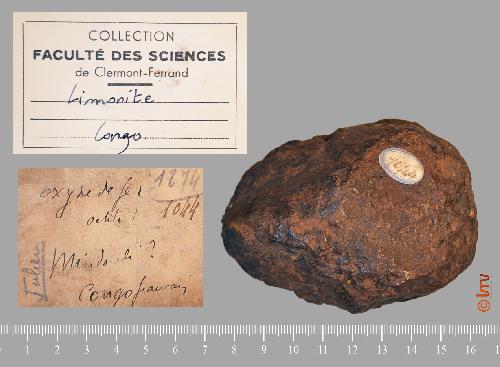 COLLECTION
FACULTÉ DES SCIENCES
de Clermont-Ferrand
Limonite
Congo
1274
oxyde de fer
1044
?
Congo français
1044
© lmv
0 1 2 3 4 5 6 7 8 9 10 11 12 13 14 15 16